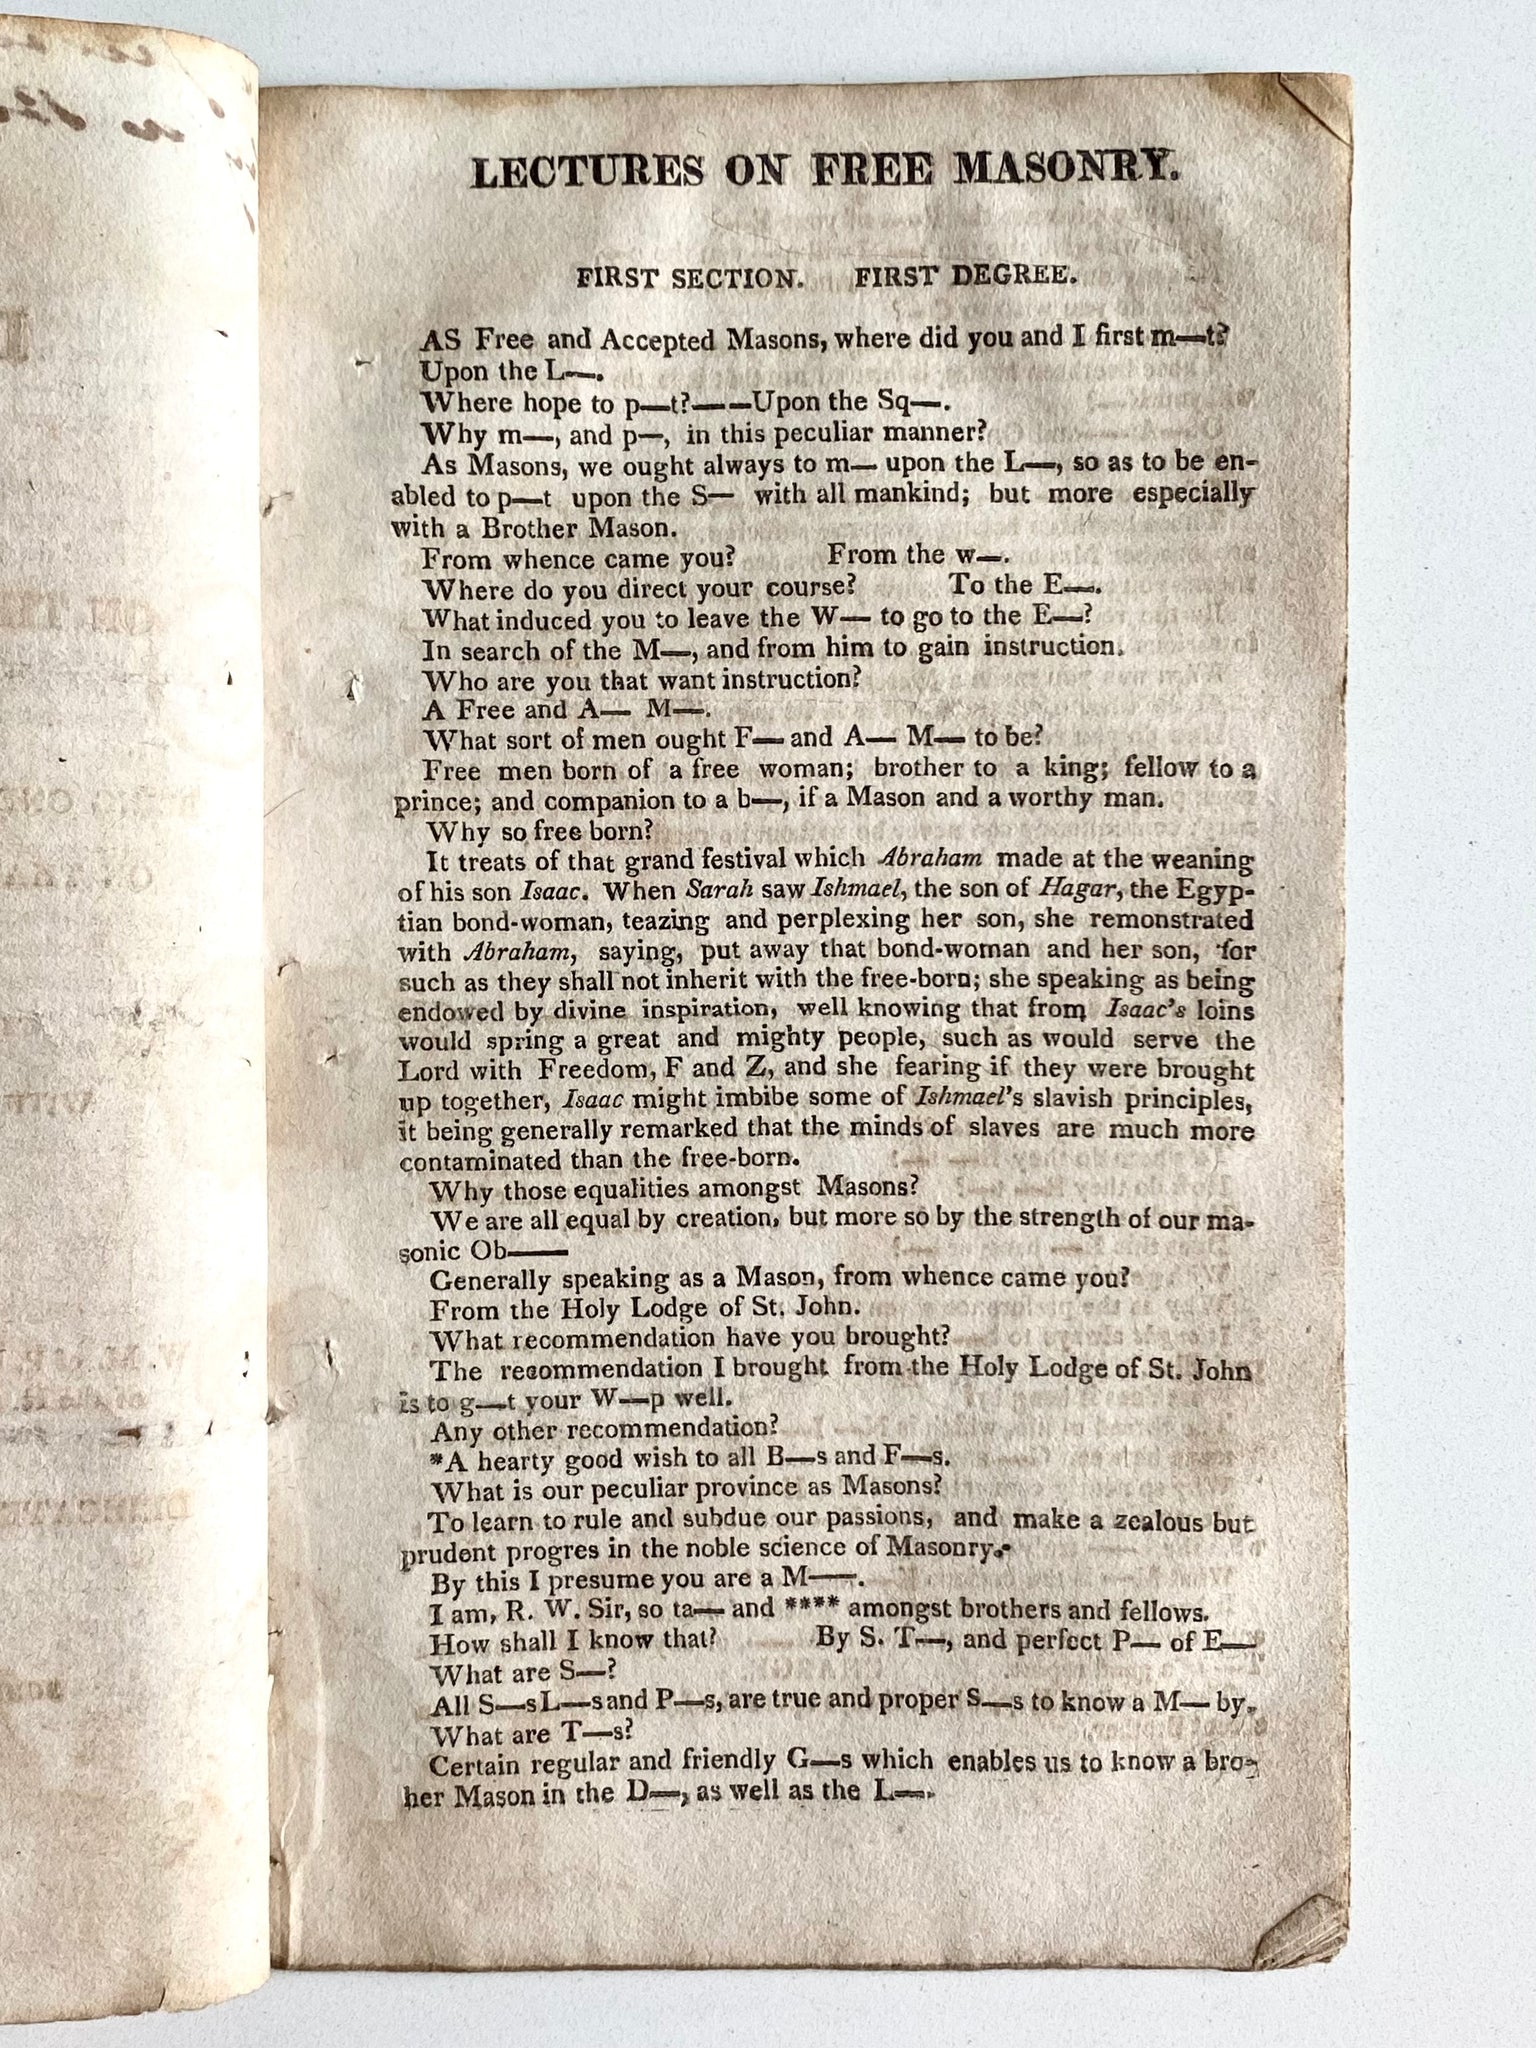 LECTURES ON FREE MASONRY.
FIRST SECTION. FIRST DEGREE.
AS Free and Accepted Masons, where did you and I first m—t?
Upon the L—.
Where hope to p—t?——Upon the Sq—.
Why m—, and p—, in this peculiar manner?
As Masons, we ought always to m— upon the L—, so as to be en-
abled to p—t upon the S— with all mankind; but more especially
with a Brother Mason.
From whence came you? From the w—.
Where do you direct your course? To the E—.
What induced you to leave the W— to go to the E—?
In search of the M—, and from him to gain instruction.
Who are you that want instruction?
A Free and A— M—.
What sort of men ought F— and A— M— to be?
Free men born of a free woman; brother to a king; fellow to a
prince; and companion to a b—, if a Mason and a worthy man.
Why so free born?
It treats of that grand festival which Abraham made at the weaning
of his son Isaac. When Sarah saw Ishmael, the son of Hagar, the Egyp-
tian bond-woman, teazing and perplexing her son, she remonstrated
with Abraham, saying, put away that bond-woman and her son, for
such as they shall not inherit with the free-born; she speaking as being
endowed by divine inspiration, well knowing that from Isaac's loins
would spring a great and mighty people, such as would serve the
Lord with Freedom, F and Z, and she fearing if they were brought
up together, Isaac might imbibe some of Ishmael's slavish principles,
it being generally remarked that the minds of slaves are much more
contaminated than the free-born.
Why those equalities amongst Masons?
We are all equal by creation, but more so by the strength of our ma-
sonic Ob——
Generally speaking as a Mason, from whence came you?
From the Holy Lodge of St. John.
What recommendation have you brought?
The recommendation I brought from the Holy Lodge of St. John
is to g—t your W—p well.
Any other recommendation?
*A hearty good wish to all B—s and F—s.
What is our peculiar province as Masons?
To learn to rule and subdue our passions, and make a zealous but
prudent progres in the noble science of Masonry.
By this I presume you are a M——.
I am, R. W. Sir, so ta— and **** amongst brothers and fellows.
How shall I know that? By S. T—, and perfect P— of E—
What are S—?
All S—s L—s and P—s, are true and proper S—s to know a M— by.
What are T—s?
Certain regular and friendly G—s which enables us to know a bro-
her Mason in the D—, as well as the L—.